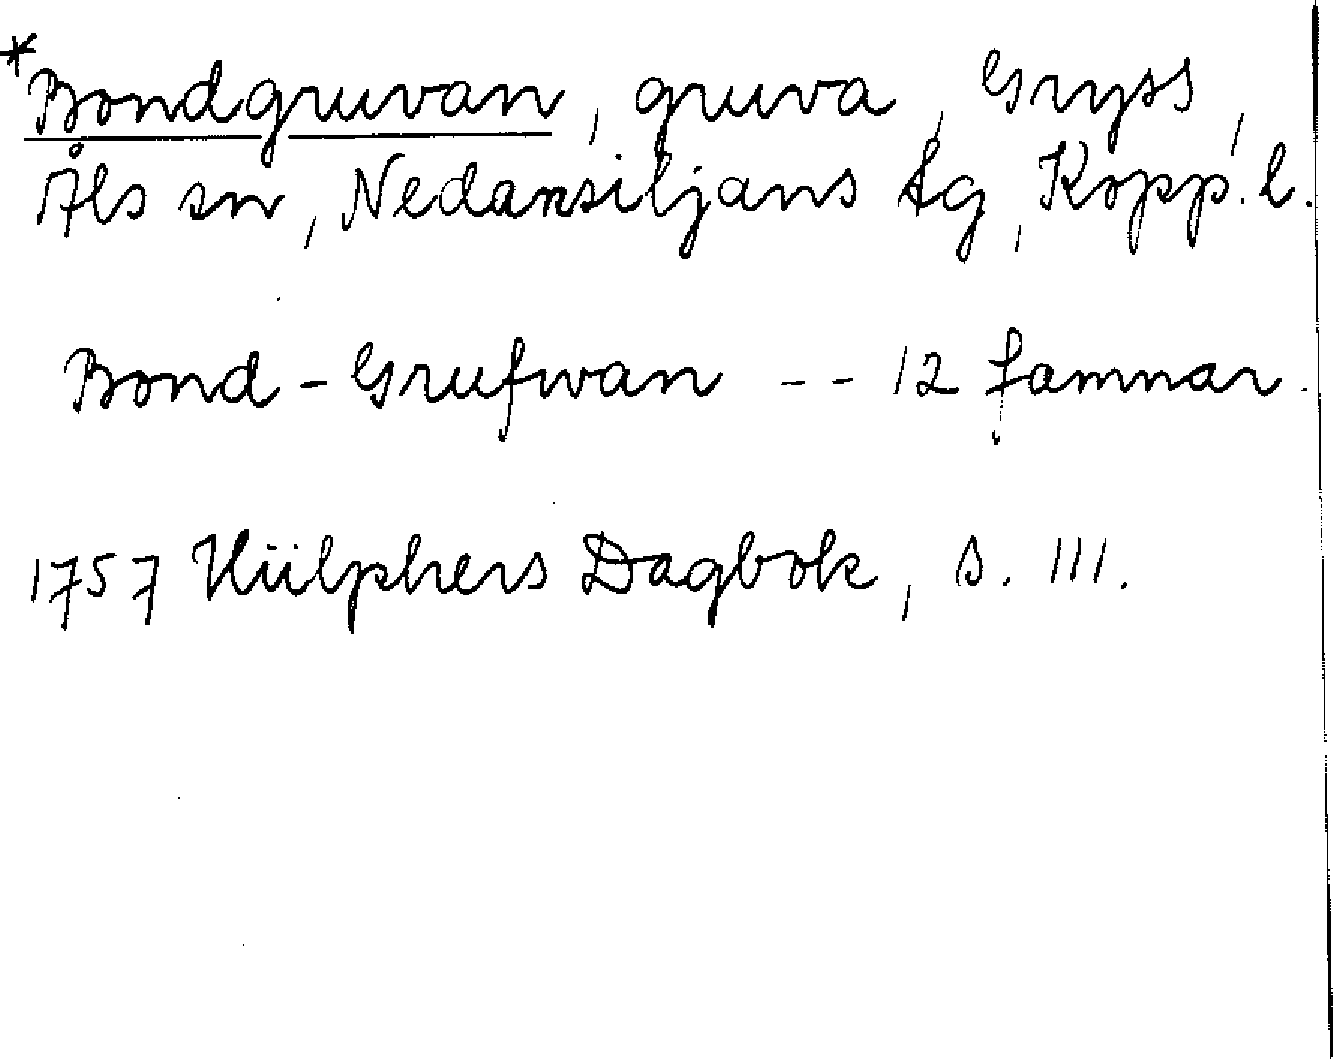 *Bondgruvan, gruva, Gryss,
Åls sn, Nedansiljans tg, Kopp. l.
Bond-Grufwan -- 12 famnar.
1757 Hülphers Dagbok, s. 111.